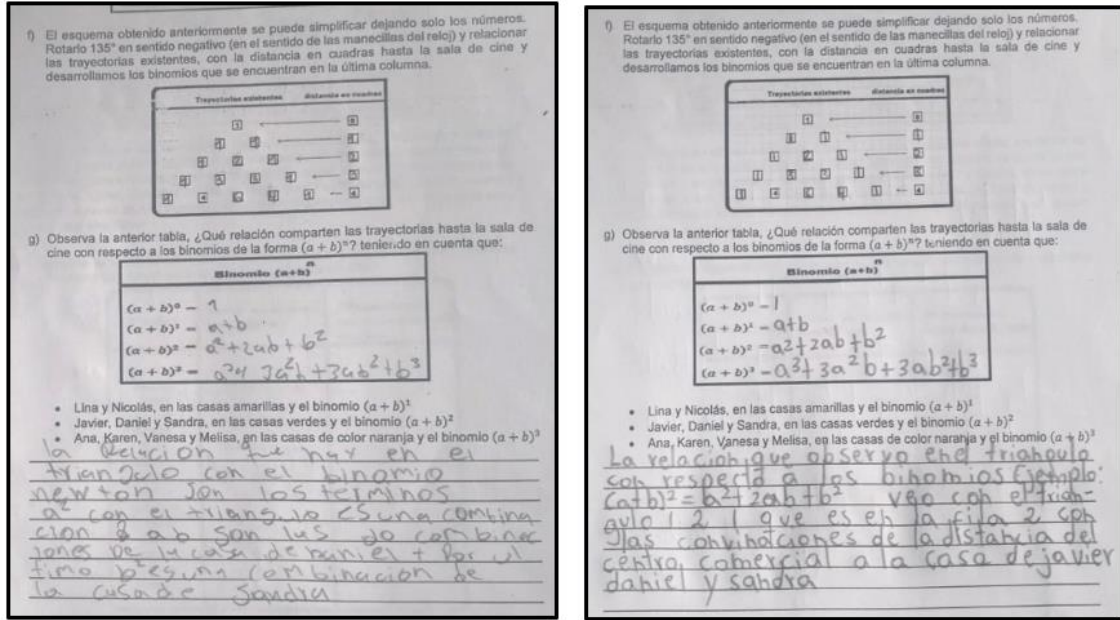 f) El esquema obtenido anteriormente se puede simplificar dejando solo los números.
Rotarlo 135° en sentido negativo (en el sentido de las manecillas del reloj) y relacionar
las trayectorias existentes, con la distancia en cuadras hasta la sala de cine y
desarrollamos los binomios que se encuentran en la última columna.
Trayectorias existentes distancia en cuadras
g) Observa la anterior tabla, ¿Qué relación comparten las trayectorias hasta la sala de
cine con respecto a los binomios de la forma (a + b)ⁿ? teniendo en cuenta que:
Binomio (a+b)ⁿ
(a + b)⁰ = 1
(a + b)¹ = a+b
(a + b)² = a²+2ab+b²
3a²b+3ab²+b³
• Lina y Nicolás, en las casas amarillas y el binomio (a + b)¹
• Javier, Daniel y Sandra, en las casas verdes y el binomio (a + b)²
• Ana, Karen, Vanesa y Melisa, en las casas de color naranja y el binomio (a + b)³
la Relacion que hay en el
triangulo con el binomio
newton son los terminos
a² con el triangulo es una combina
cion ab son las combinac
iones De la casa de Daniel + Por ul
timo b² es una combinacion de
la casa de Sandra
f) El esquema obtenido anteriormente se puede simplificar dejando solo los números.
Rotarlo 135° en sentido negativo (en el sentido de las manecillas del reloj) y relacionar
las trayectorias existentes, con la distancia en cuadras hasta la sala de cine y
desarrollamos los binomios que se encuentran en la última columna.
Trayectorias existentes distancia en cuadras
g) Observa la anterior tabla, ¿Qué relación comparten las trayectorias hasta la sala de
cine con respecto a los binomios de la forma (a + b)ⁿ? teniendo en cuenta que:
Binomio (a+b)ⁿ
(a + b)⁰ = 1
(a + b)¹ = a+b
(a + b)² = a²+2ab+b²
(a + b)³ = a³+3a²b+3ab²+b³
• Lina y Nicolás, en las casas amarillas y el binomio (a + b)¹
• Javier, Daniel y Sandra, en las casas verdes y el binomio (a + b)²
• Ana, Karen, Vanesa y Melisa, en las casas de color naranja y el binomio (a + b)³
La relacion que observo en el triangulo
con respecto a los binomios Ejemplo:
(a+b)² = a²+2ab+b² veo con el trian-
gulo 1 2 1 que es en la fila 2 con
las convinaciones de la distancia del
centro comercial a la casa de javier
daniel y sandra